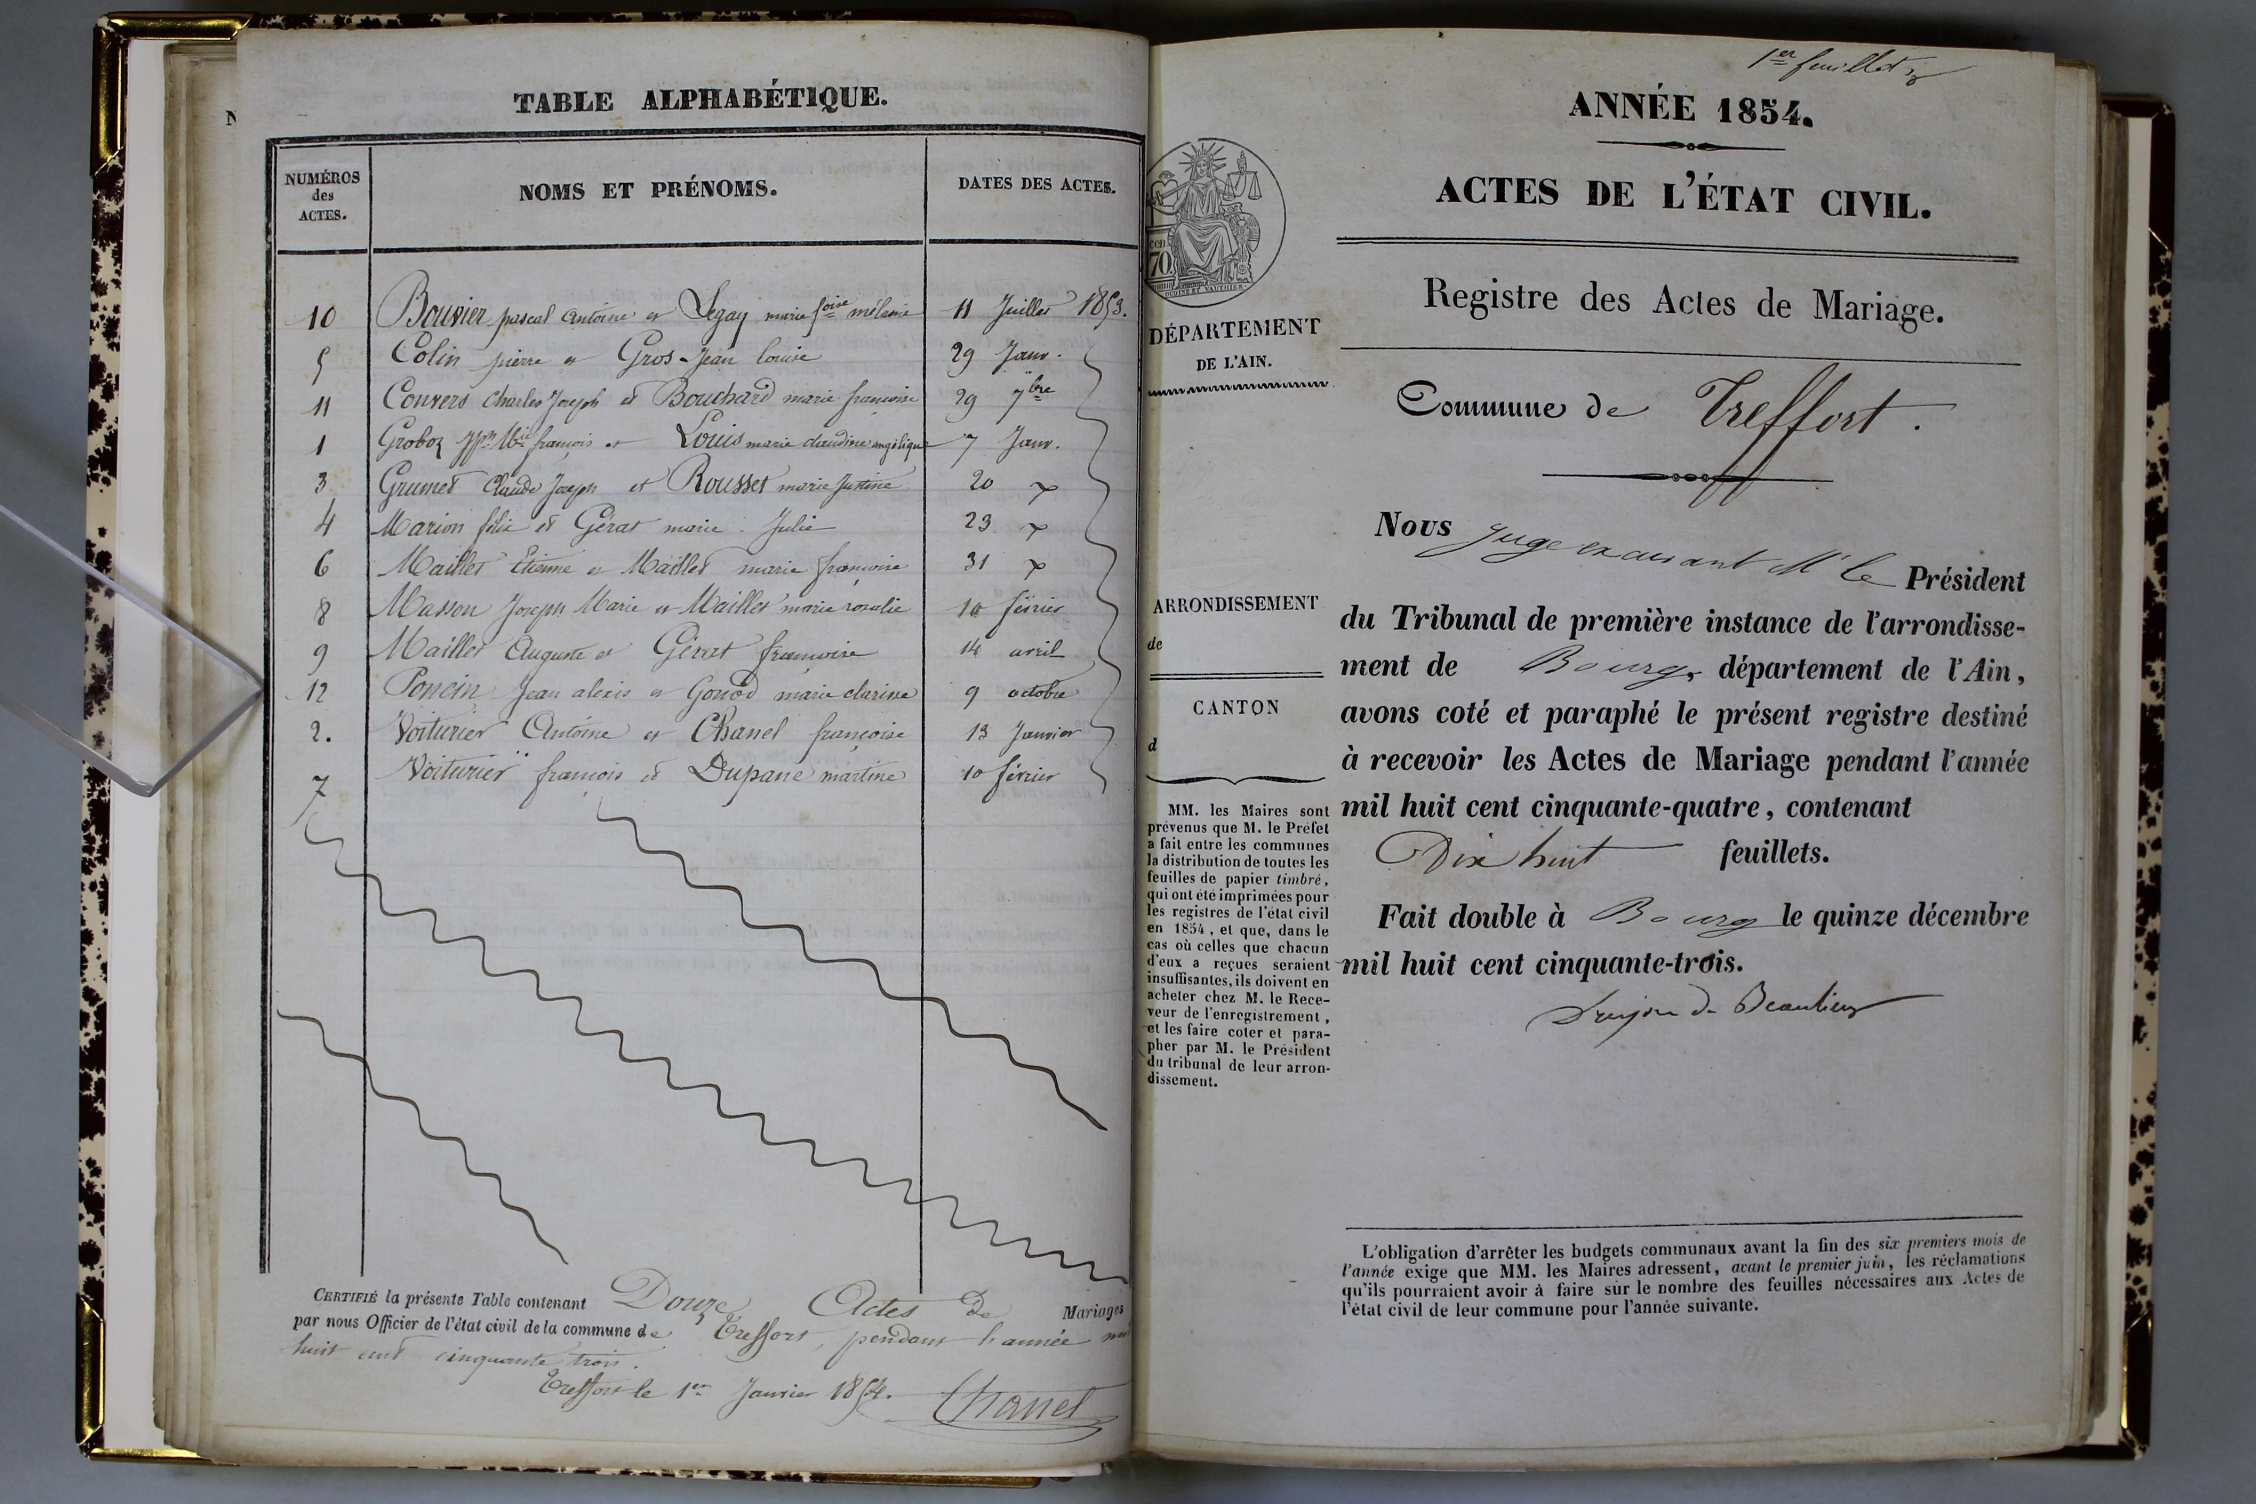 TABLE ALPHABÉTIQUE.
NUMÉROS des ACTES. NOMS ET PRÉNOMS. DATES DES ACTES.
10 Bouvier pascal Antoine et Legay marie foise mélanie 11 Juillet 1853.
5 Colin pierre et Gros-Jean louise 29 Janv.
11 Convers Charles Joseph et Bouchard marie françoise 29 7bre
1 Groboz françois et Louis marie claudine angélique 7 Janv.
3 Grumet Claude Joseph et Rousset marie Justine 20
4 Marion félix et Gérat marie Julie 23
6 Maillet Etienne et Maillet marie françoise 31
8 Masson Joseph Marie et Maillet marie rosalie 10 février
9 Maillet Auguste et Gérat françoise 14 avril
12 Poncin Jean alexis et Gonod marie clarisse 9 octobre
2. Voiturier Antoine et Chanel françoise 13 Janvier
7 Voiturier françois et Dupane martine 10 février
CERTIFIÉ la présente Table contenant Douze Actes De Mariages
par nous Officier de l'état civil de la commune de Treffort, pendant l'année mil
huit cent cinquante trois.
Treffort le 1er Janvier 1854.
Chanel
1er feuillet
ANNÉE 1854.
ACTES DE L'ÉTAT CIVIL.
Registre des Actes de Mariage.
cen
70
DÉPARTEMENT
DE L'AIN.
ARRONDISSEMENT
de
CANTON
d
MM. les Maires sont
prévenus que M. le Préfet
a fait entre les communes
la distribution de toutes les
feuilles de papier timbré,
qui ont été imprimées pour
les registres de l'état civil
en 1854, et que, dans le
cas où celles que chacun
d'eux a reçues seraient
insuffisantes, ils doivent en
acheter chez M. le Rece-
veur de l'enregistrement,
et les faire coter et para-
pher par M. le Président
du tribunal de leur arron-
dissement.
Commune de Treffort.
Nous Juge excusant Mr le Président
du Tribunal de première instance de l'arrondisse-
ment de Bourg, département de l'Ain,
avons coté et paraphé le présent registre destiné
à recevoir les Actes de Mariage pendant l'année
mil huit cent cinquante-quatre, contenant
Dix huit feuillets.
Fait double à Bourg le quinze décembre
mil huit cent cinquante-trois.
de Beaulieu
L'obligation d'arrêter les budgets communaux avant la fin des six premiers mois de
l'année exige que MM. les Maires adressent, avant le premier juin, les réclamations
qu'ils pourraient avoir à faire sur le nombre des feuilles nécessaires aux Actes de
l'état civil de leur commune pour l'année suivante.